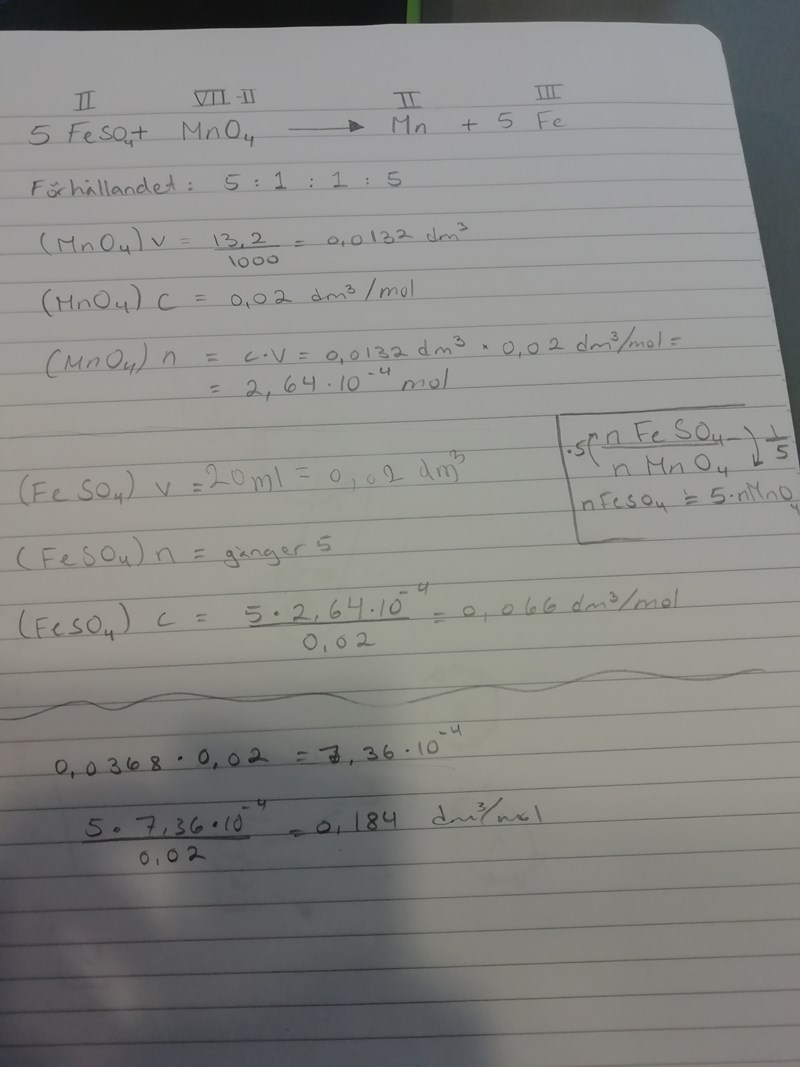 II VII -II II III
5 FeSO₄+ MnO₄ ⟶ Mn + 5 Fe
Förhållandet: 5 : 1 : 1 : 5
(MnO₄) v = 13,2/1000 = 0,0132 dm³
(MnO₄) c = 0,02 dm³/mol
(MnO₄) n = c·v = 0,0132 dm³ × 0,02 dm³/mol =
= 2,64·10⁻⁴ mol
·5( n FeSO₄ / n MnO₄ ) 1/5
nFeSO₄ = 5·nMnO₄
(FeSO₄) v = 20ml = 0,02 dm³
(FeSO₄) n = gånger 5
(FeSO₄) c = 5·2,64·10⁻⁴/0,02 = 0,066 dm³/mol
0,0368 · 0,02 = 7,36·10⁻⁴
5·7,36·10⁻⁴/0,02 = 0,184 dm³/mol